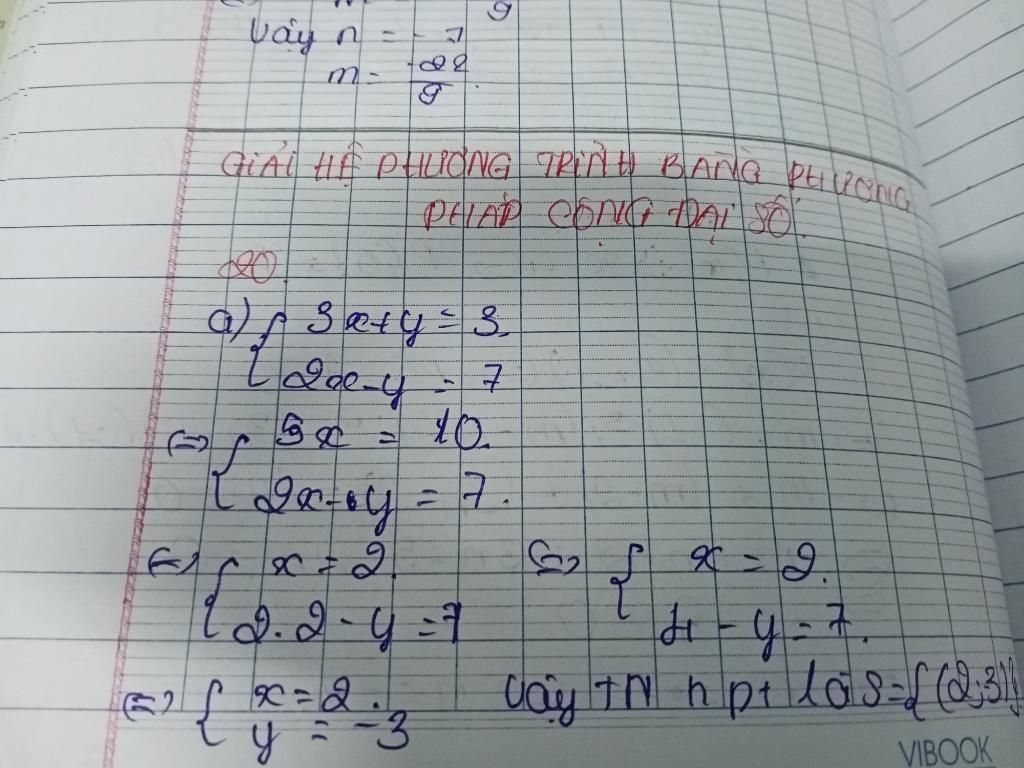 9
Vậy n = -7
m = -22
9
GIẢI HỆ PHƯƠNG TRÌNH BẰNG PHƯƠNG
PHÁP CỘNG ĐẠI SỐ.
20.
a) { 3x+y = 3
2x-y = 7
<=> { 5x = 10.
2x-y = 7.
<=> { x = 2. <=> { x = 2.
2.2 - y = 7 4 - y = 7.
<=> { x = 2. Vậy TN h pt là S={(2;3)}
y = -3
VIBOOK